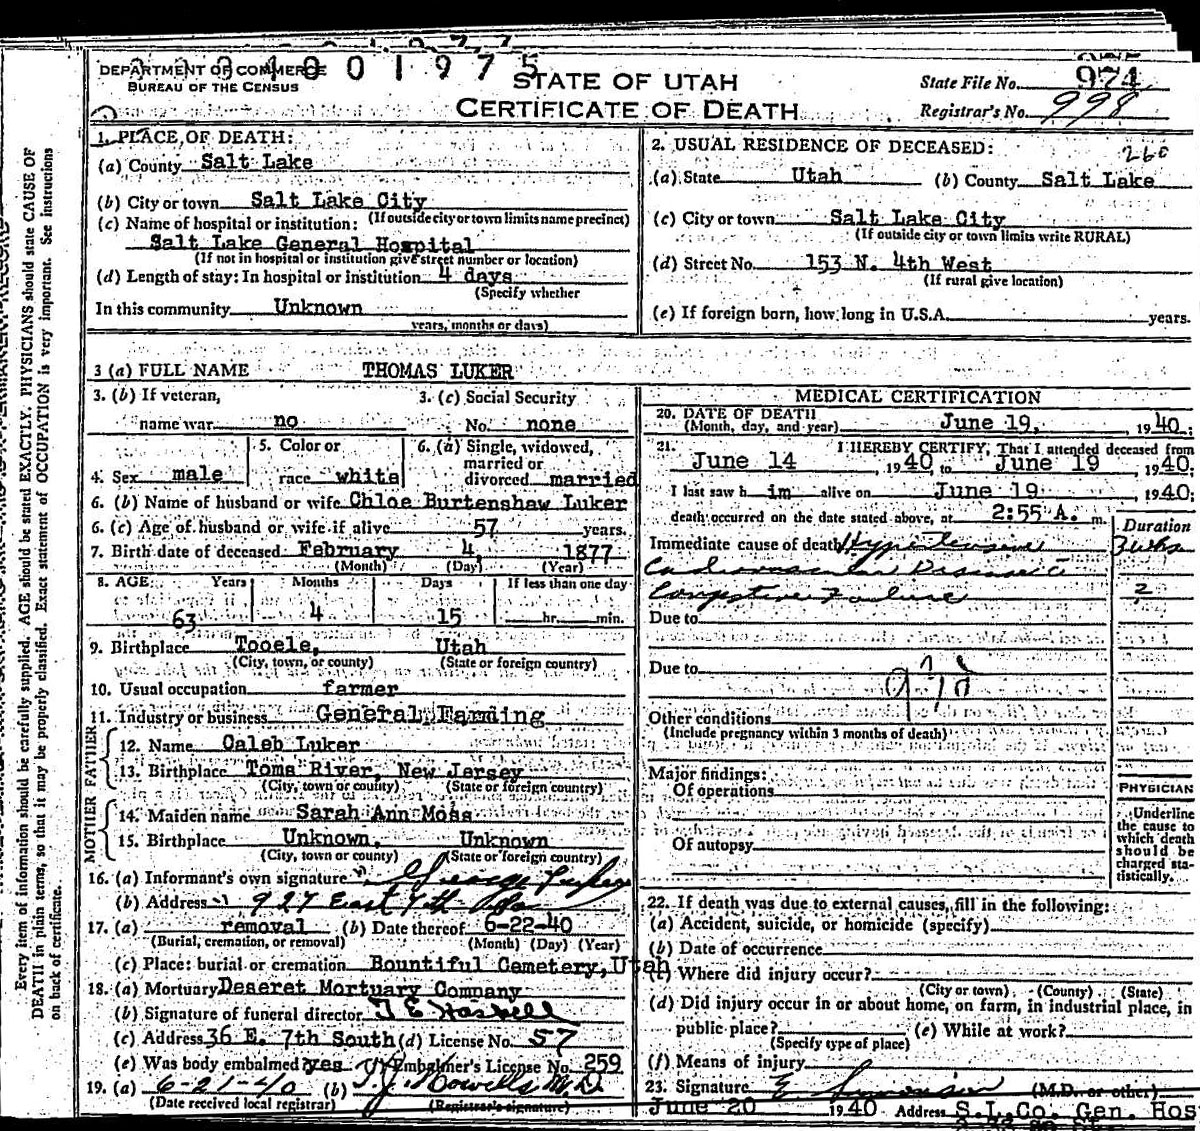 3 4 0 0 1 9 7 5
DEPARTMENT OF COMMERCE
BUREAU OF THE CENSUS
STATE OF UTAH
CERTIFICATE OF DEATH
State File No. 974
Registrar's No. 998
Every item of information should be carefully supplied. AGE should be stated EXACTLY. PHYSICIANS should state CAUSE OF
DEATH in plain terms, so that it may be properly classified. Exact statement of OCCUPATION is very important. See instructions
on back of certificate.
1. PLACE OF DEATH:
(a) County Salt Lake
(b) City or town Salt Lake City
(If outside city or town limits name precinct)
(c) Name of hospital or institution:
Salt Lake General Hospital
(If not in hospital or institution give street number or location)
(d) Length of stay: In hospital or institution 4 days
(Specify whether
In this community Unknown
years, months or days)
2. USUAL RESIDENCE OF DECEASED:
260
(a) State Utah (b) County Salt Lake
(c) City or town Salt Lake City
(If outside city or town limits write RURAL)
(d) Street No. 153 N. 4th West
(If rural give location)
(e) If foreign born, how long in U.S.A. years.
3 (a) FULL NAME THOMAS LUKER
3. (b) If veteran,
name war no
3. (c) Social Security
No. none
4. Sex male
5. Color or
race white
6. (a) Single, widowed,
married or
divorced married
6. (b) Name of husband or wife Chloe Burtenshaw Luker
6. (c) Age of husband or wife if alive 57 years.
7. Birth date of deceased February 4, 1877
(Month) (Day) (Year)
8. AGE Years Months Days If less than one day
63 4 15 hr. min.
9. Birthplace Tooele, Utah
(City, town, or county) (State or foreign country)
10. Usual occupation farmer
11. Industry or business General Farming
FATHER
12. Name Caleb Luker
13. Birthplace Toms River, New Jersey
(City, town or county) (State or foreign country)
MOTHER
14. Maiden name Sarah Ann Moss
15. Birthplace Unknown, Unknown
(City, town or county) (State or foreign country)
16. (a) Informant's own signature George Luker
(b) Address 927 East 4th
17. (a) removal (b) Date thereof 6-22-40
(Burial, cremation, or removal) (Month) (Day) (Year)
(c) Place: burial or cremation Bountiful Cemetery, Utah
18. (a) Mortuary Deseret Mortuary Company
(b) Signature of funeral director
(c) Address 36 E. 7th South (d) License No. 57
(e) Was body embalmed? yes Embalmer's License No. 259
19. (a) 6-21-40 (b) T. J. Howells M.D.
(Date received local registrar) (Registrar's signature)
MEDICAL CERTIFICATION
20. DATE OF DEATH
(Month, day, and year) June 19, 1940;
21. I HEREBY CERTIFY, That I attended deceased from
June 14, 1940, to June 19, 1940;
I last saw h im alive on June 19, 1940;
death occurred on the date stated above, at 2:55 A. m.
Duration
Immediate cause of death Hypertensive 3 wks
Cardiovascular Disease
Congestive Failure 2
Due to
Due to
Other conditions
(Include pregnancy within 3 months of death)
Major findings:
Of operations
Of autopsy
PHYSICIAN
Underline
the cause to
which death
should be
charged sta-
tistically.
22. If death was due to external causes, fill in the following:
(a) Accident, suicide, or homicide (specify)
(b) Date of occurrence
(c) Where did injury occur?
(City or town) (County) (State)
(d) Did injury occur in or about home, on farm, in industrial place, in
public place? (e) While at work?
(Specify type of place)
(f) Means of injury
23. Signature E. Simonson (M.D. or other)
June 20 1940 Address S.L.Co. Gen. Hos